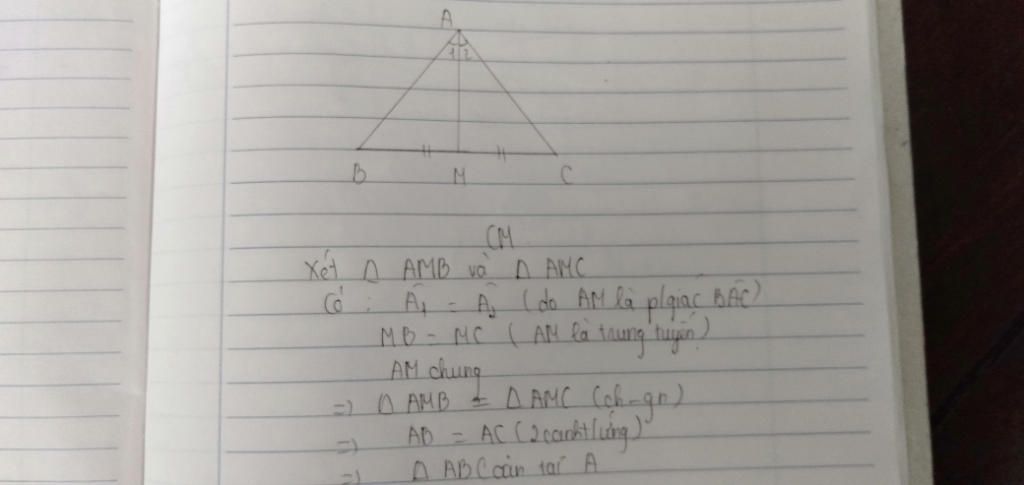 A
1 2
B M C
CM
Xét Δ AMB và Δ AMC
Có : Â₁ = Â₂ (do AM là p/giác BÂC)
MB = MC ( AM là trung tuyến)
AM chung
=) Δ AMB = Δ AMC (ch-gn)
=) AB = AC (2 cạnh t/ứng)
=) Δ ABC cân tại A